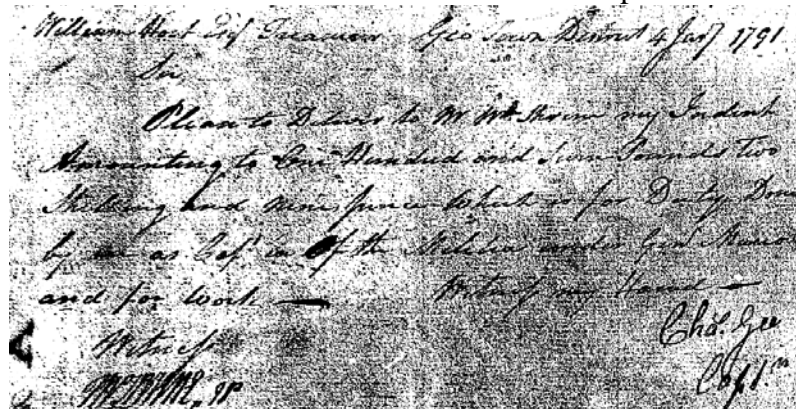 William Hort Esqr Treasurer Geo Town District 4 Jany 1791
Sir
Please to Deliver to Mr Wm my Indent
Amounting to One Hundred and Pounds Two
Shilling and nine pence Which is for Duty Done
by me as Capt in Of the Militia under Genl Marion
and for Work — Witness my Hand —
Chas. Gee
Capt.
Witness